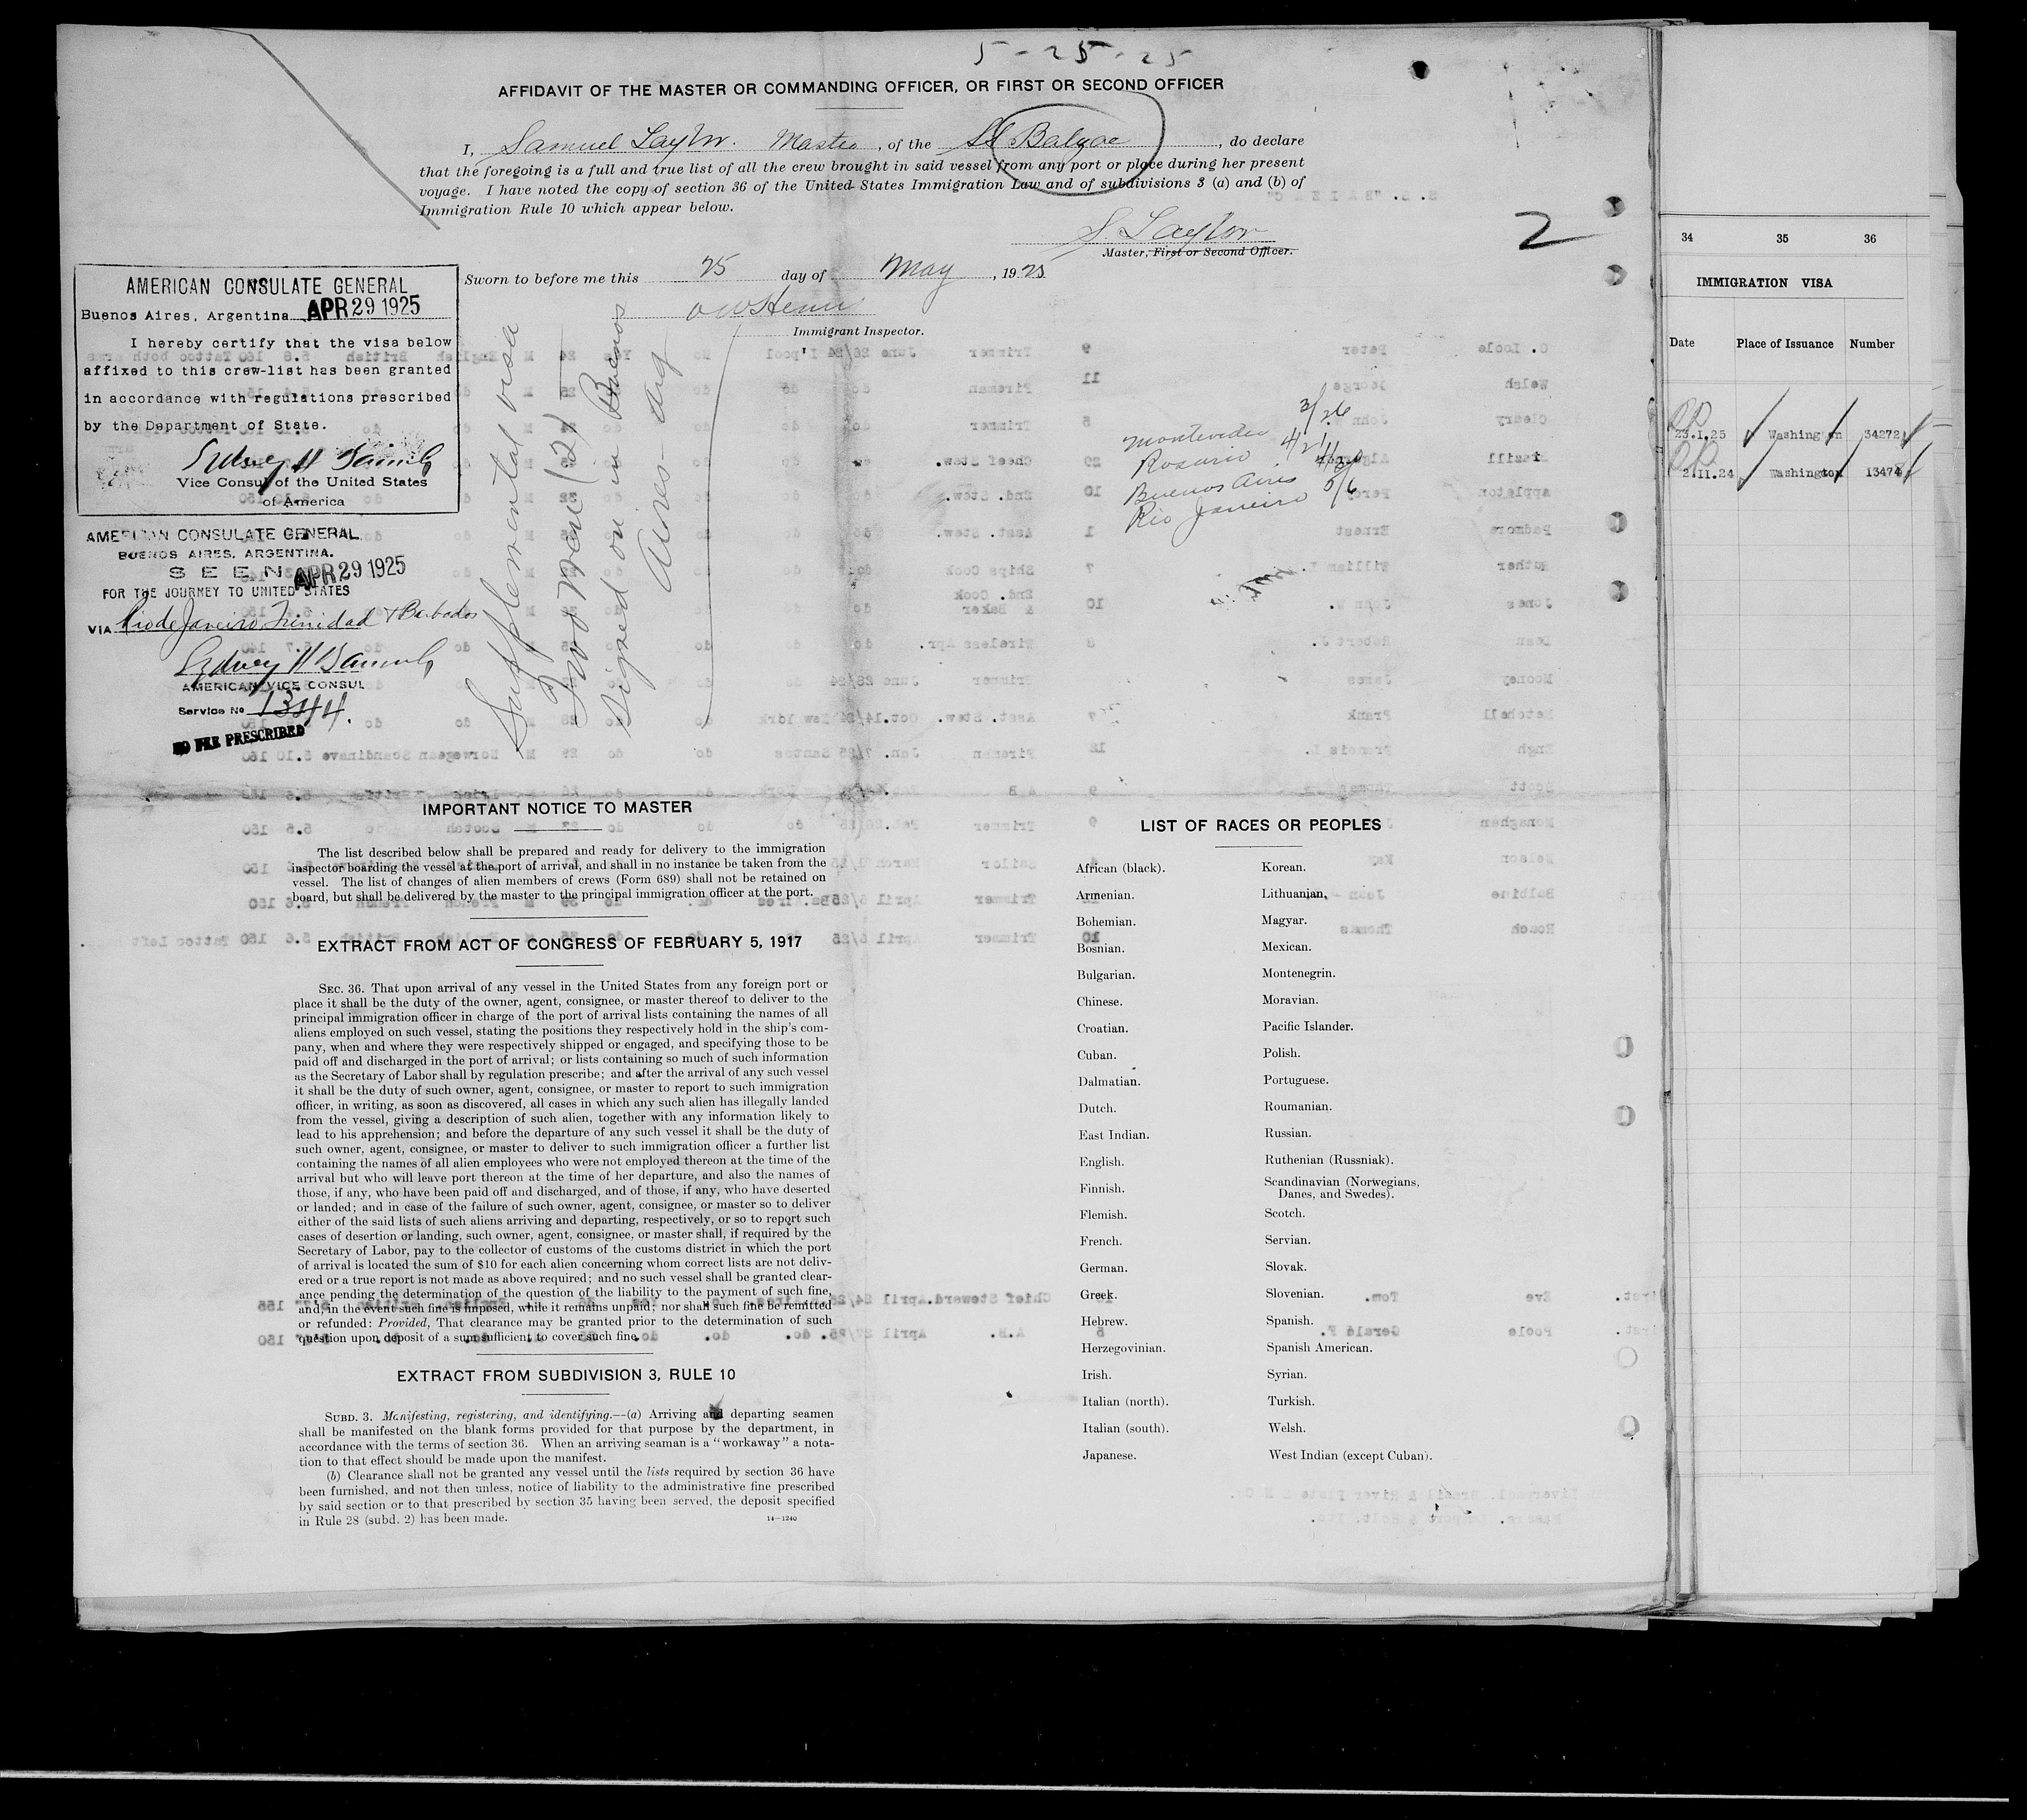 5-25-25
AFFIDAVIT OF THE MASTER OR COMMANDING OFFICER, OR FIRST OR SECOND OFFICER
I, Samuel Taylor. Master, of the SS Balzac, do declare
that the foregoing is a full and true list of all the crew brought in said vessel from any port or place during her present
voyage. I have noted the copy of section 36 of the United States Immigration Law and of subdivisions 3 (a) and (b) of
Immigration Rule 10 which appear below.
S. Taylor
Master, First or Second Officer.
2
Sworn to before me this 25 day of May, 1925
Immigrant Inspector.
AMERICAN CONSULATE GENERAL
Buenos Aires, Argentina APR 29 1925
I hereby certify that the visa below
affixed to this crew-list has been granted
in accordance with regulations prescribed
by the Department of State.
Vice Consul of the United States
of America
AMERICAN CONSULATE GENERAL
BUENOS AIRES, ARGENTINA.
SEEN APR 29 1925
FOR THE JOURNEY TO UNITED STATES
VIA Rio de Janeiro, Trinidad & Barbados
AMERICAN VICE CONSUL
Service No 1344.
NO FEE PRESCRIBED
Supplemental visa
Two men (2)
Signed on in Buenos
Aires - Arg
Montevideo 3/26
Rosario 4/21
Buenos Aires 4/30
Rio Janeiro 5/6
34 35 36
IMMIGRATION VISA
Date Place of Issuance Number
23.1.25 Washington 34272
2.11.24 Washington 13474
IMPORTANT NOTICE TO MASTER
The list described below shall be prepared and ready for delivery to the immigration
inspector boarding the vessel at the port of arrival, and shall in no instance be taken from the
vessel. The list of changes of alien members of crews (Form 689) shall not be retained on
board, but shall be delivered by the master to the principal immigration officer at the port.
EXTRACT FROM ACT OF CONGRESS OF FEBRUARY 5, 1917
SEC. 36. That upon arrival of any vessel in the United States from any foreign port or
place it shall be the duty of the owner, agent, consignee, or master thereof to deliver to the
principal immigration officer in charge of the port of arrival lists containing the names of all
aliens employed on such vessel, stating the positions they respectively hold in the ship's com-
pany, when and where they were respectively shipped or engaged, and specifying those to be
paid off and discharged in the port of arrival; or lists containing so much of such information
as the Secretary of Labor shall by regulation prescribe; and after the arrival of any such vessel
it shall be the duty of such owner, agent, consignee, or master to report to such immigration
officer, in writing, as soon as discovered, all cases in which any such alien has illegally landed
from the vessel, giving a description of such alien, together with any information likely to
lead to his apprehension; and before the departure of any such vessel it shall be the duty of
such owner, agent, consignee, or master to deliver to such immigration officer a further list
containing the names of all alien employees who were not employed thereon at the time of the
arrival but who will leave port thereon at the time of her departure, and also the names of
those, if any, who have been paid off and discharged, and of those, if any, who have deserted
or landed; and in case of the failure of such owner, agent, consignee, or master so to deliver
either of the said lists of such aliens arriving and departing, respectively, or so to report such
cases of desertion or landing, such owner, agent, consignee, or master shall, if required by the
Secretary of Labor, pay to the collector of customs of the customs district in which the port
of arrival is located the sum of $10 for each alien concerning whom correct lists are not deliv-
ered or a true report is not made as above required; and no such vessel shall be granted clear-
ance pending the determination of the question of the liability to the payment of such fine,
and, in the event such fine is imposed, while it remains unpaid; nor shall such fine be remitted
or refunded: Provided, That clearance may be granted prior to the determination of such
question upon deposit of a sum sufficient to cover such fine.
EXTRACT FROM SUBDIVISION 3, RULE 10
SUBD. 3. Manifesting, registering, and identifying.—(a) Arriving and departing seamen
shall be manifested on the blank forms provided for that purpose by the department, in
accordance with the terms of section 36. When an arriving seaman is a "workaway" a nota-
tion to that effect should be made upon the manifest.
(b) Clearance shall not be granted any vessel until the lists required by section 36 have
been furnished, and not then unless, notice of liability to the administrative fine prescribed
by said section or to that prescribed by section 35 having been served, the deposit specified
in Rule 28 (subd. 2) has been made.
14—1240
LIST OF RACES OR PEOPLES
African (black).
Armenian.
Bohemian.
Bosnian.
Bulgarian.
Chinese.
Croatian.
Cuban.
Dalmatian.
Dutch.
East Indian.
English.
Finnish.
Flemish.
French.
German.
Greek.
Hebrew.
Herzegovinian.
Irish.
Italian (north).
Italian (south).
Japanese.
Korean.
Lithuanian.
Magyar.
Mexican.
Montenegrin.
Moravian.
Pacific Islander.
Polish.
Portuguese.
Roumanian.
Russian.
Ruthenian (Russniak).
Scandinavian (Norwegians,
Danes, and Swedes).
Scotch.
Servian.
Slovak.
Slovenian.
Spanish.
Spanish American.
Syrian.
Turkish.
Welsh.
West Indian (except Cuban).